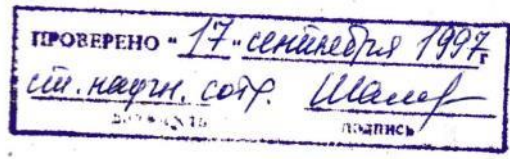 ПРОВЕРЕНО "17" сентября 1997 г
ст. научн. сотр.
должность подпись